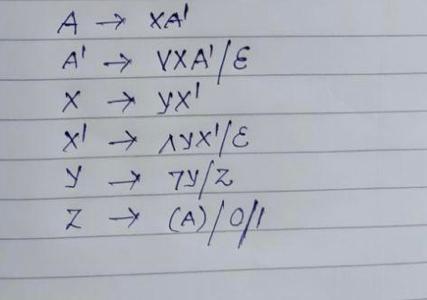 A → XA'
A' → VXA'/ε
X → yX'
X' → ΛyX'/ε
y → 7y/Z
Z → (A)/0/1